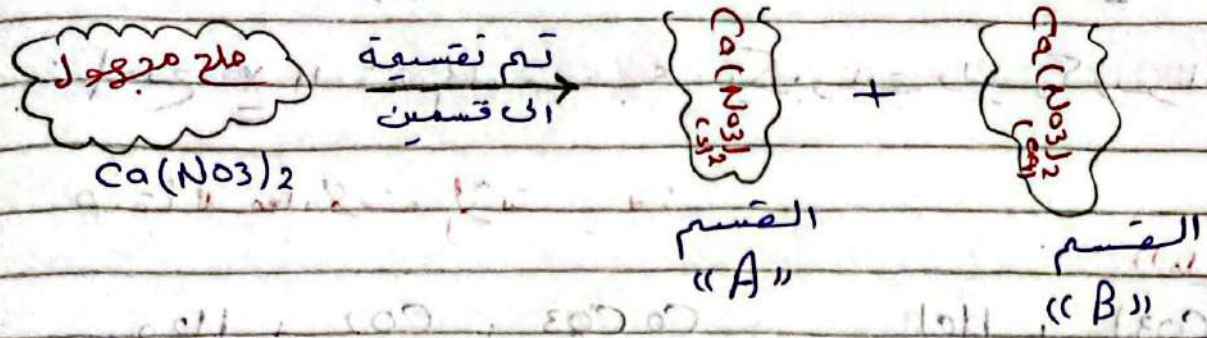 ملح مجهول
Ca(NO3)2
تم تقسيمة
الى قسمين
Ca(NO3)2 (s)
+
Ca(NO3)2 (aq)
القسم
"A"
القسم
"B"